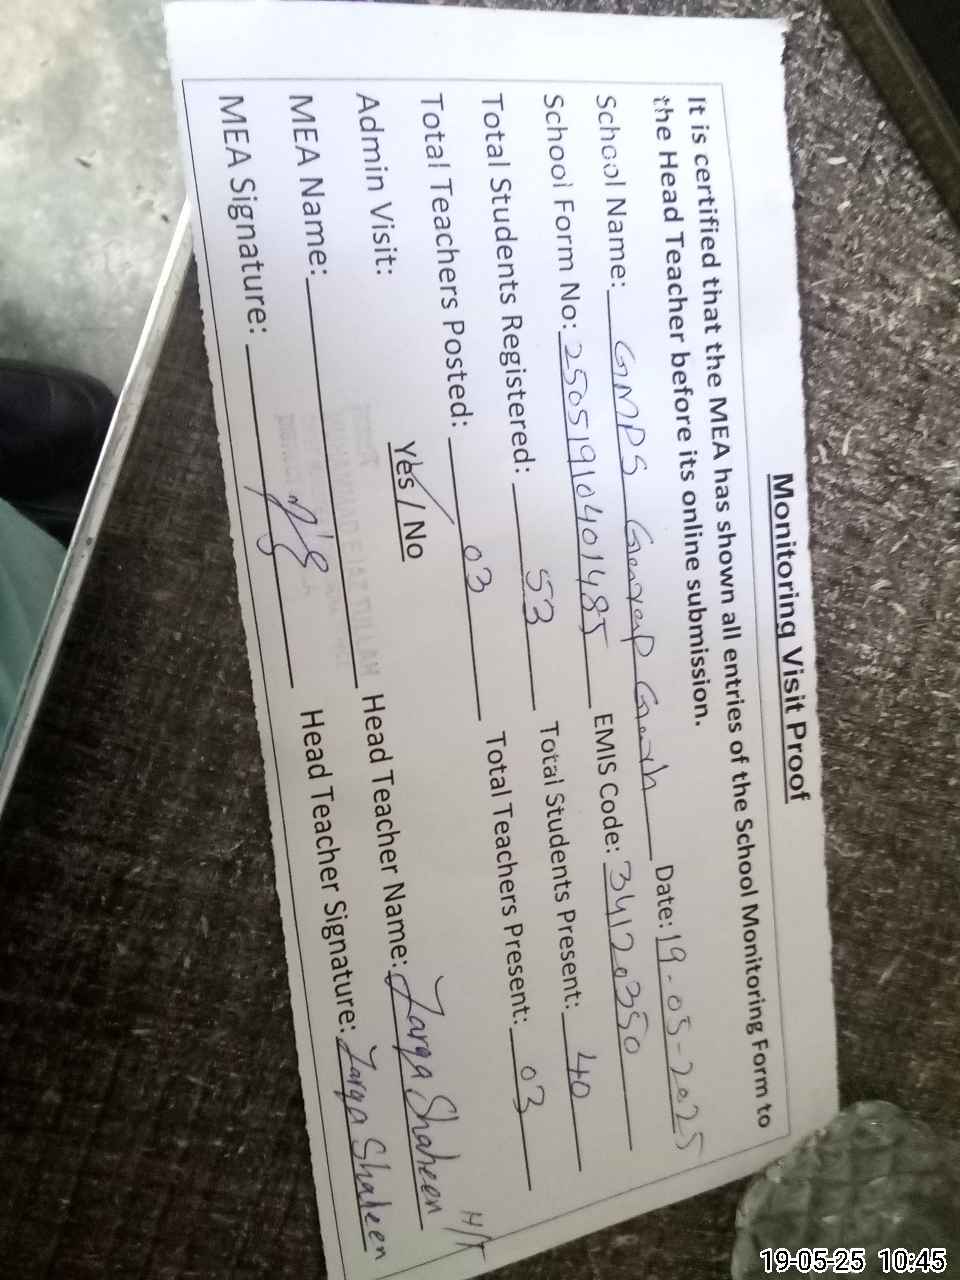 Monitoring Visit Proof
It is certified that the MEA has shown all entries of the School Monitoring Form to
the Head Teacher before its online submission.
School Name: GMPS Garh Date: 19-05-2025
School Form No: 25051910401485 EMIS Code: 34120350
Total Students Registered: 53 Total Students Present: 40
Total Teachers Posted: 03 Total Teachers Present: 03
Admin Visit: Yes / No
MEA Name: Head Teacher Name: Zarqa Shaheen H/T
MEA Signature: Head Teacher Signature: Zarqa Shaheen
19-05-25 10:45